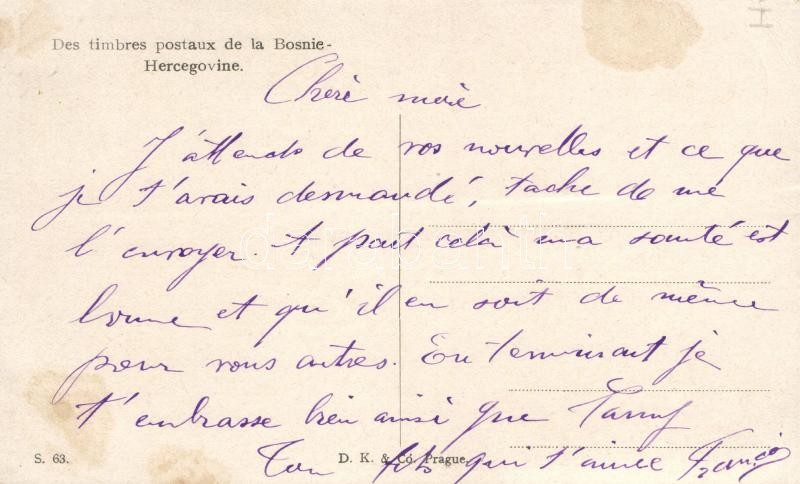 Des timbres postaux de la Bosnie-
Hercegovine.
Chère mère
J'attends de vos nouvelles et ce que
je t'avais demandé, tache de me
l'envoyer. A part celà ma santé est
bonne et qu'il en soit de même
pour vous autres. En terminant je
t'embrasse bien ainsi que
Ton fils qui t'aime François
S. 63.
D. K. & Co. Prague.